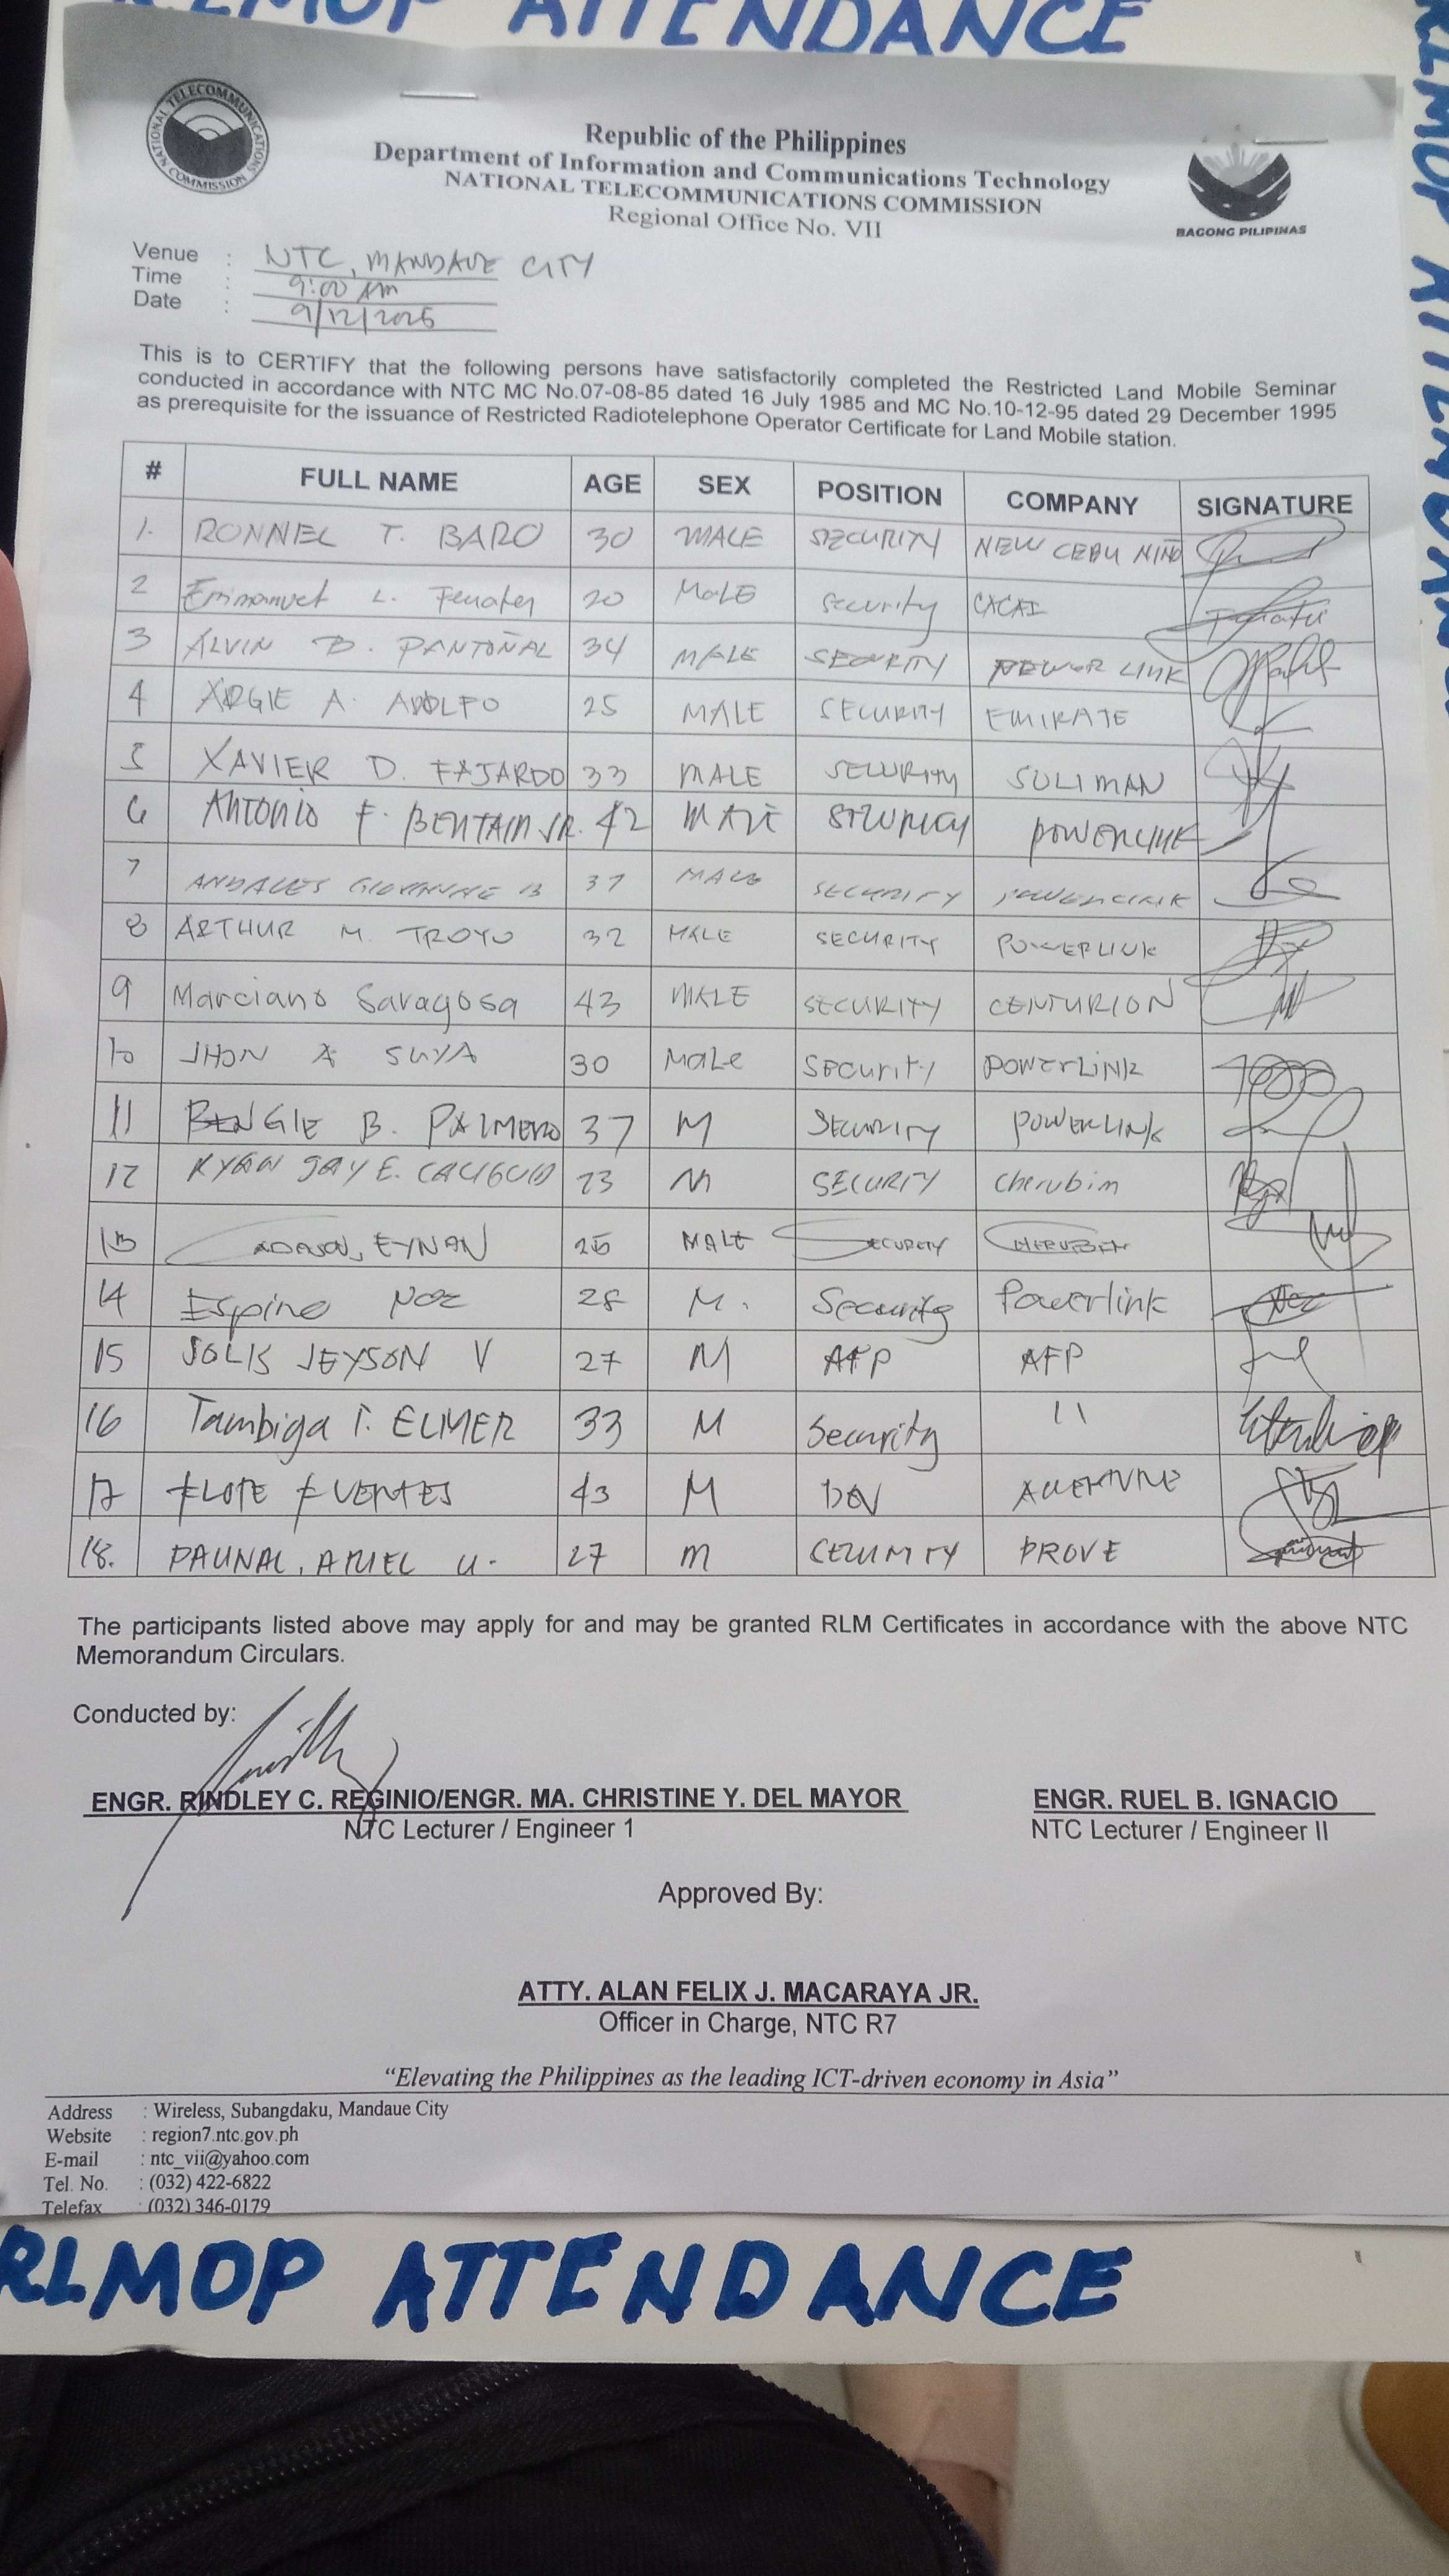 RLMOP ATTENDANCE
NATIONAL TELECOMMUNICATIONS COMMISSION
Republic of the Philippines
Department of Information and Communications Technology
NATIONAL TELECOMMUNICATIONS COMMISSION
Regional Office No. VII
BAGONG PILIPINAS
Venue : NTC, MANDAUE CITY
Time : 9:00 AM
Date : 9/12/2025
This is to CERTIFY that the following persons have satisfactorily completed the Restricted Land Mobile Seminar
conducted in accordance with NTC MC No.07-08-85 dated 16 July 1985 and MC No.10-12-95 dated 29 December 1995
as prerequisite for the issuance of Restricted Radiotelephone Operator Certificate for Land Mobile station.
# FULL NAME AGE SEX POSITION COMPANY SIGNATURE
1. RONNEL T. BARO 30 MALE SECURITY NEW CEBU NIÑO
2 Emmanuel L. 20 MaLE Security CACAI
3 ALVIN B. PANTOÑAL 34 MALE SECURITY LINK
4 ARGIE A. ADOLFO 25 MALE SECURITY EMIRATE
5 XAVIER D. FAJARDO 33 MALE SECURITY SULIMAN
6 Antonio F. BENTAIN JR. 42 MALE SECURITY POWERLINK
7 ANDALES GIOVANNIE B MALE SECURITY POWERLINK
8 ARTHUR M. TROYO 32 MALE SECURITY POWERLINK
9 Marciano Saragosa 43 MALE SECURITY CENTURION
10 JHON A SUYA 30 MaLe Security POWErLiNK
11 BENGIE B. PALMERO 37 M SECURITY POWERLINK
12 RYAN JAY E. 23 M SECURITY Cherubim
13 EYNAN MALE SECURITY CHERUBIM
14 Espino Noe 28 M. Security Powerlink
15 SOLIS JEYSON V 27 M AFP AFP
16 Tambiga T. ELMER 33 M Security 11
17 FLOTE FUENTES 43 M
18. PAUNAL, ARIEL U. 27 m CEZURITY PROVE
The participants listed above may apply for and may be granted RLM Certificates in accordance with the above NTC
Memorandum Circulars.
Conducted by:
ENGR. RINDLEY C. REGINIO/ENGR. MA. CHRISTINE Y. DEL MAYOR
NTC Lecturer / Engineer 1
ENGR. RUEL B. IGNACIO
NTC Lecturer / Engineer II
Approved By:
ATTY. ALAN FELIX J. MACARAYA JR.
Officer in Charge, NTC R7
“Elevating the Philippines as the leading ICT-driven economy in Asia”
Address : Wireless, Subangdaku, Mandaue City
Website : region7.ntc.gov.ph
E-mail : ntc_vii@yahoo.com
Tel. No. : (032) 422-6822
Telefax : (032) 346-0179
RLMOP ATTENDANCE
RLMOP ATTENDANCE